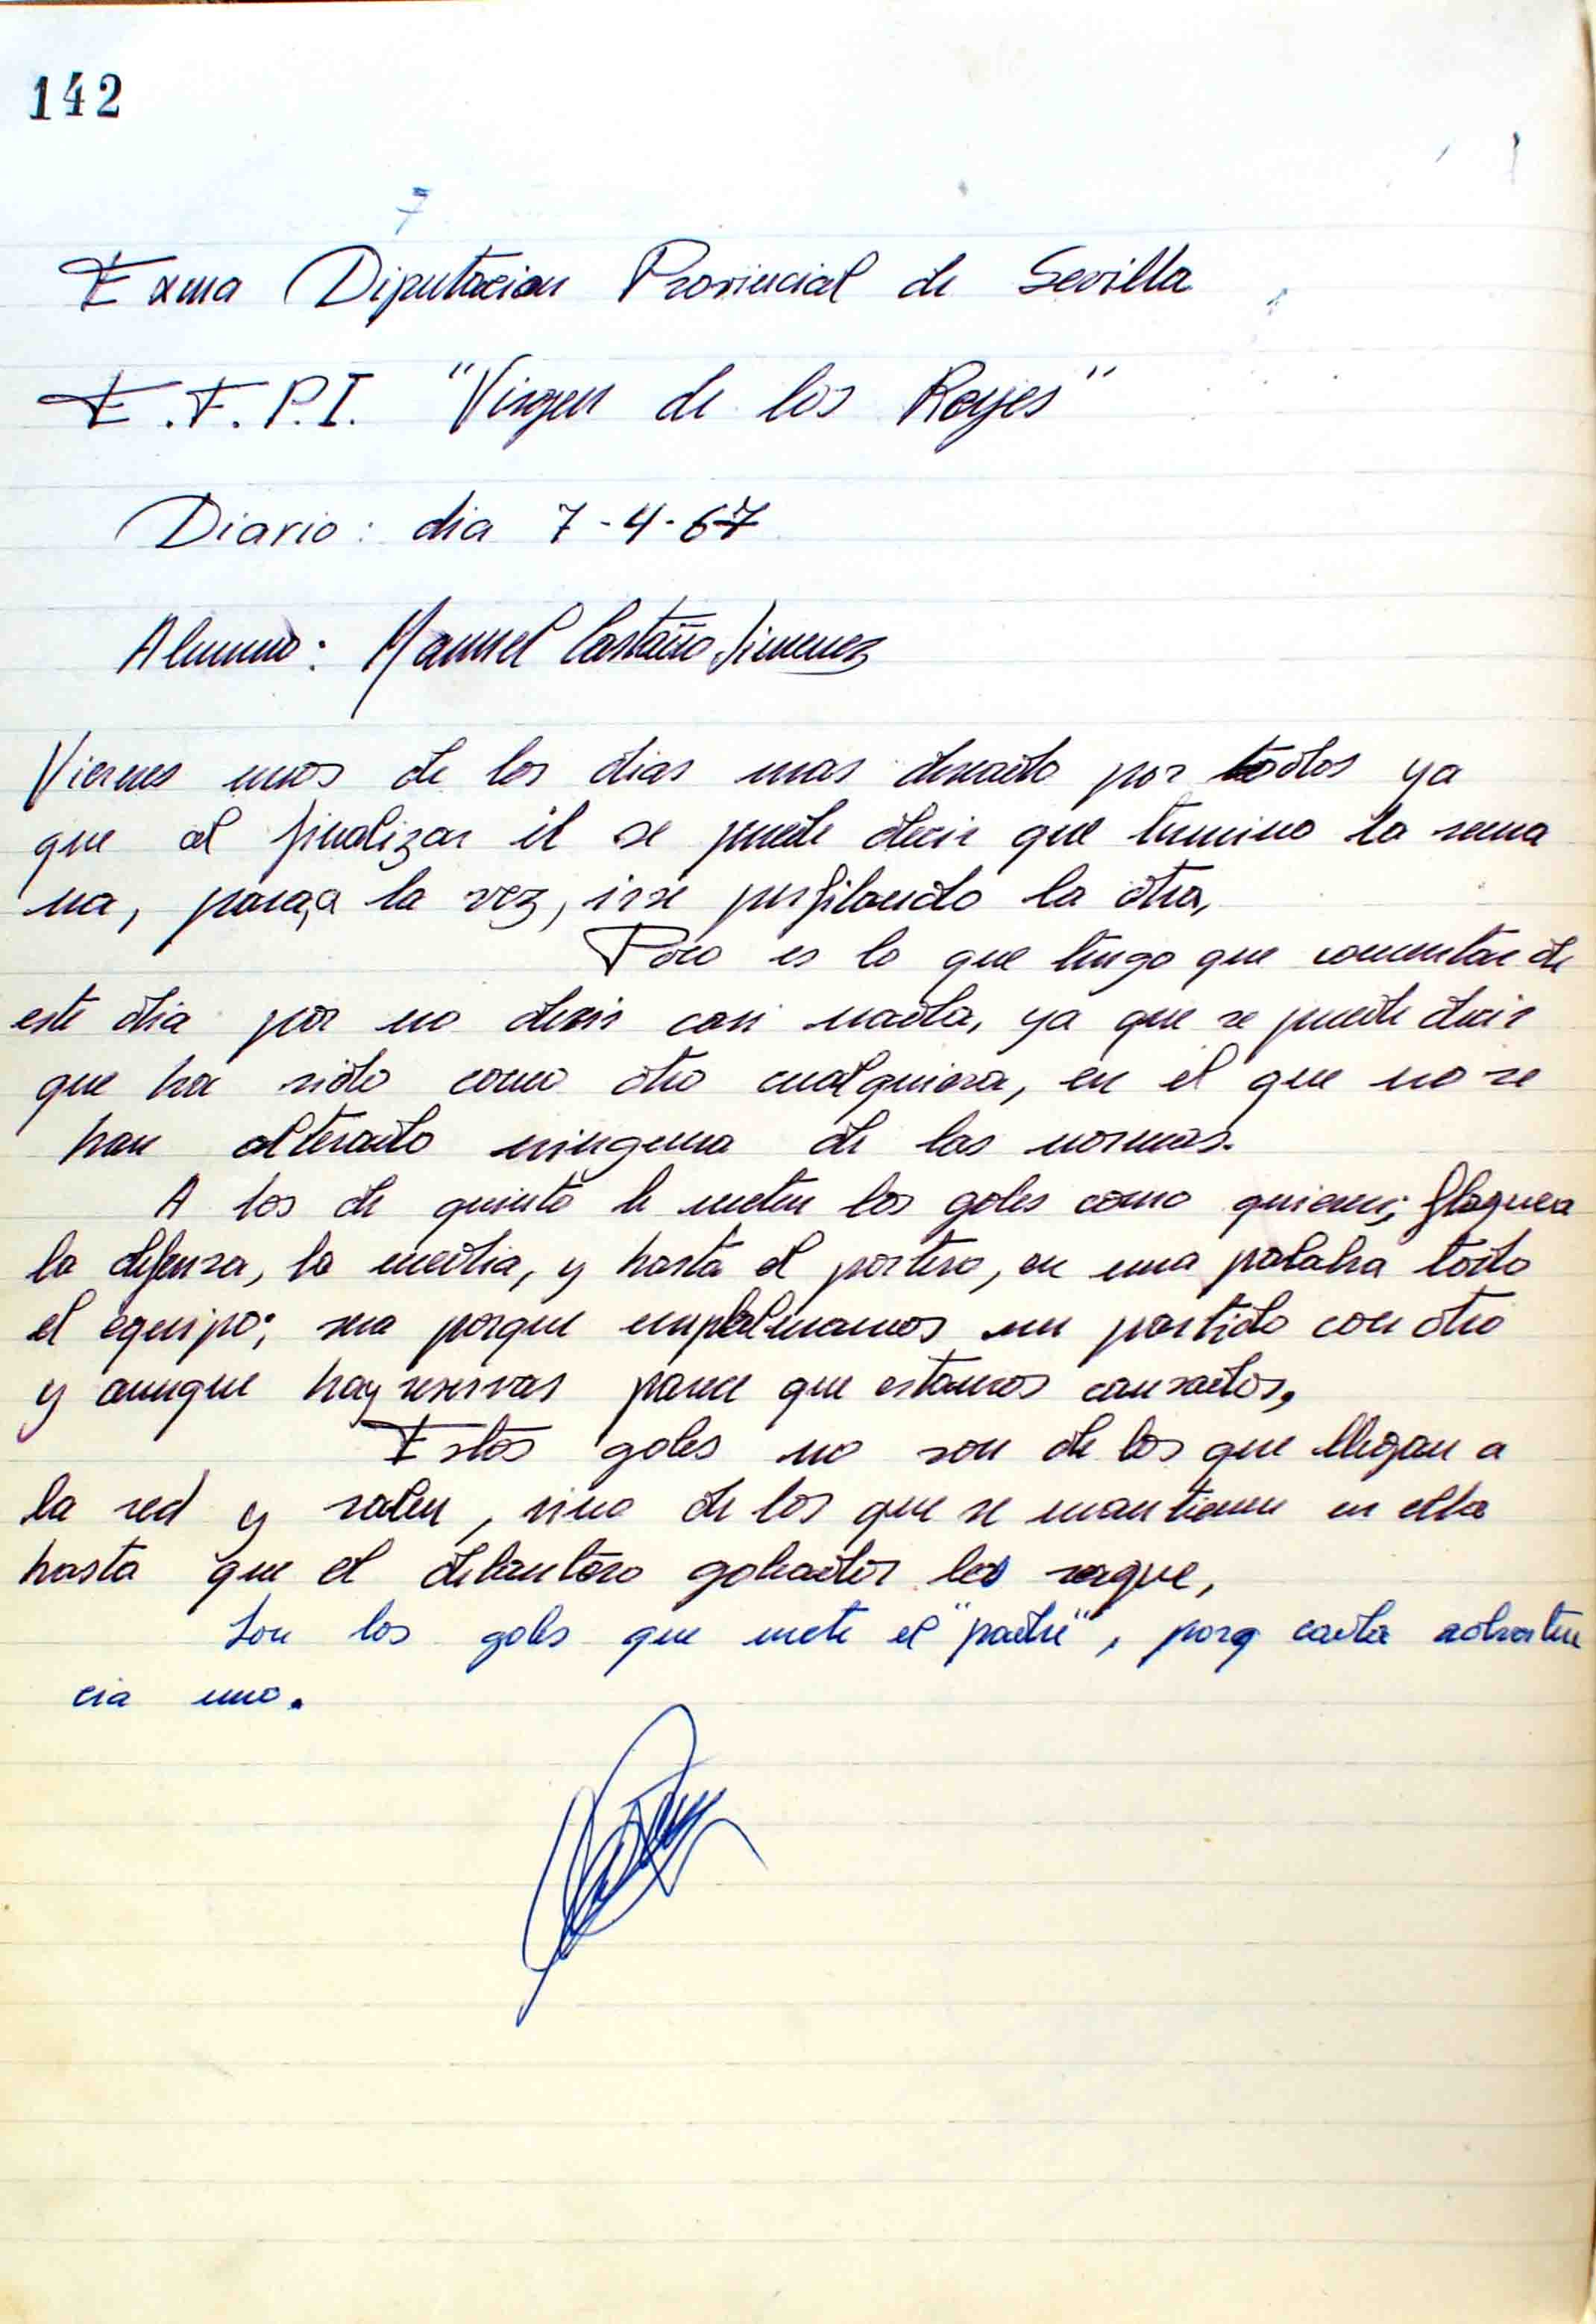 142
7
Exma Diputacion Provincial de Sevilla
E.F.P.I. "Virgen de los Reyes"
Diario: dia 7-4-67
Alumno: Manuel Castaño Jimenez
Viernes unos de los dias mas deseado por todos ya
que al finalizar él se puede decir que termino la sema
na, para, a la vez, irse perfilando la otra,
Poco es lo que tengo que comentar de
este dia por no decir casi nada, ya que se puede decir
que ha sido como otro cualquiera, en el que no se
han alterado ninguna de las normas.
A los de quinto le meten los goles como quieren; flaquea
la defensa, la media, y hasta el portero, en una palabra todo
el equipo; sera porque empalmamos un partido con otro
y aunque hay reservas parece que estamos cansados,
Estos goles no son de los que llegan a
la red y salen, sino de los que se mantienen en ella
hasta que el delantero goleador los saque,
Son los goles que mete el "padre", porq cada adverten
cia uno.